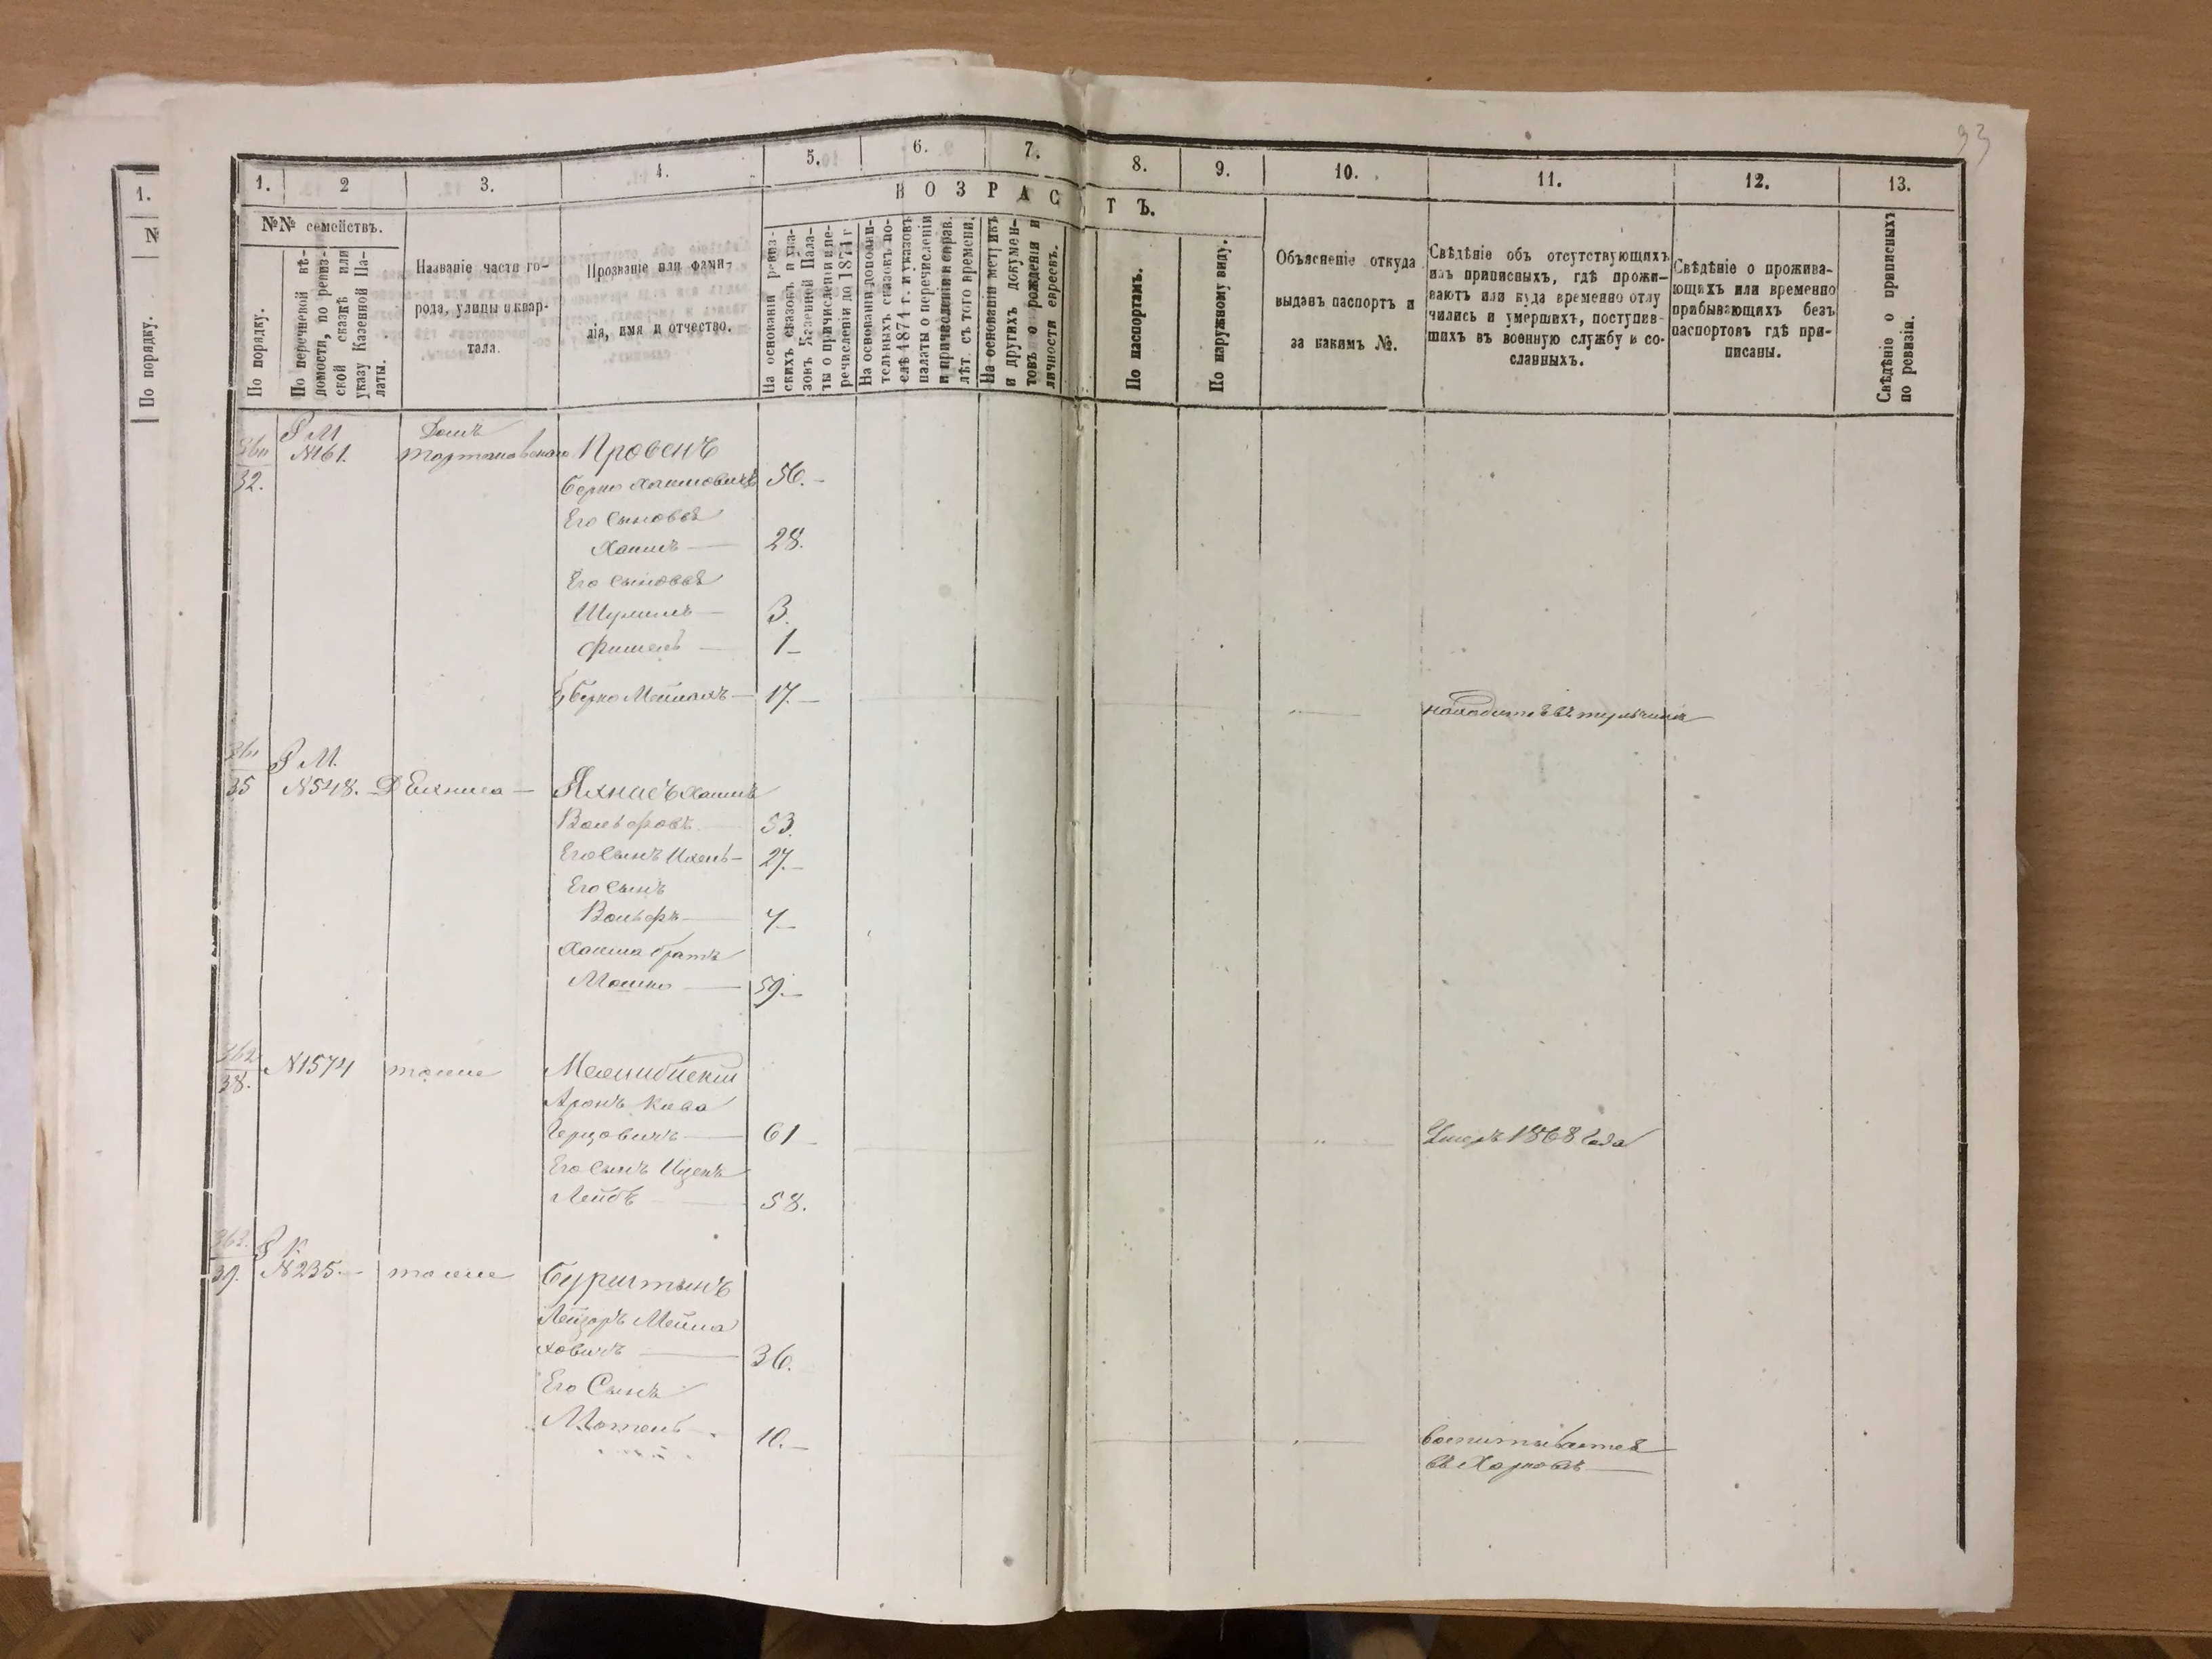 33
1.
№
По порядку.
1. 2 3. 4. 5. 6. 7. 8. 9. 10. 11. 12. 13.
ВОЗРАСТЪ.
№№ семействъ.
По порядку.
По перечневой вѣ-
домости, по ревиз-
ской сказкѣ или
указу Казенной Па-
латы.
Названіе части го-
рода, улицы и квар-
тала.
Прозваніе или фами-
лія, имя и отчество.
На основаніи ревиз-
скихъ сказокъ и ука-
зовъ Казенной Пала-
ты о причисленіи и пе-
речисленіи до 1874 г
На основаніи дополни-
тельныхъ сказокъ по-
слѣ 1874 г. и указовъ
палаты о перечисленіи
и причисленіи еврав.
лѣт. съ того времени.
На основаніи метрикъ
и другихъ докумен-
товъ о рожденіи и
личности евреевъ.
По паспортамъ.
По наружному виду.
Объясненіе откуда
выданъ паспортъ и
за какимъ №.
Свѣдѣніе объ отсутствующихъ
изъ приписныхъ, гдѣ прожи-
ваютъ или куда временно отлу
чились и умершихъ, поступив-
шихъ въ военную службу и со-
сланныхъ.
Свѣдѣніе о прожива-
ющихъ или временно
прибывающихъ безъ
паспортовъ гдѣ при-
писаны.
Свѣдѣніе о приписныхъ
по ревизіи.
Р М Домъ
№161. Провенъ
32.
Берко Хаимовичъ 56.
Его сыновья
Хаимъ 28.
Его сыновья
Шулимъ 3.
Фишель 1
Берко Мейлахъ 17.
361 Р М.
35 №548. Д Яхнисъ Хаимъ
Вольфовъ 53.
Его сынъ 27.
Его сынъ
Вольфъ 7
Хаима братъ
Мошко 59.
362
38. №1574 тоже Межибицкій
Аронъ Кива
Герцовичъ 61 Умеръ 1868 года
Его сынъ Ицекъ
Лейбъ 58.
363. Р К.
39. №235. тоже Бурштынъ
Лейзоръ Мейла
ховичъ 36.
Его Сынъ
Мотель 10. воспитывается
въ Харковѣ